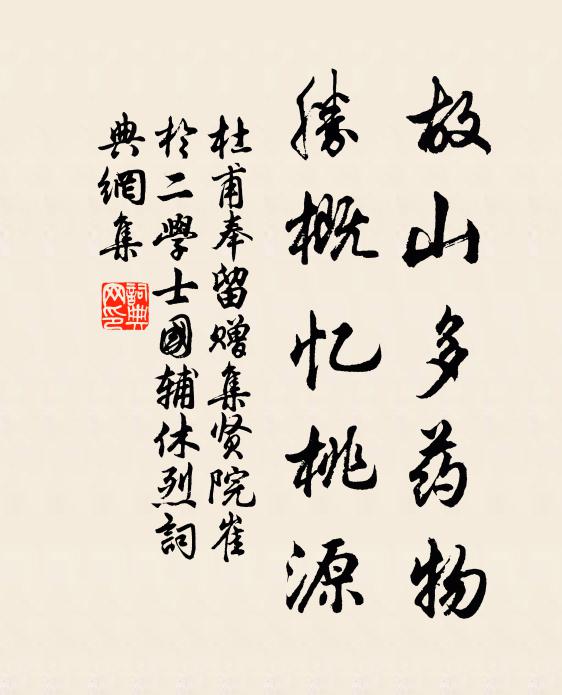 故山多药物
胜概忆桃源
杜甫奉留赠集贤院崔
於二学士国辅休烈词
典网集
词典网印